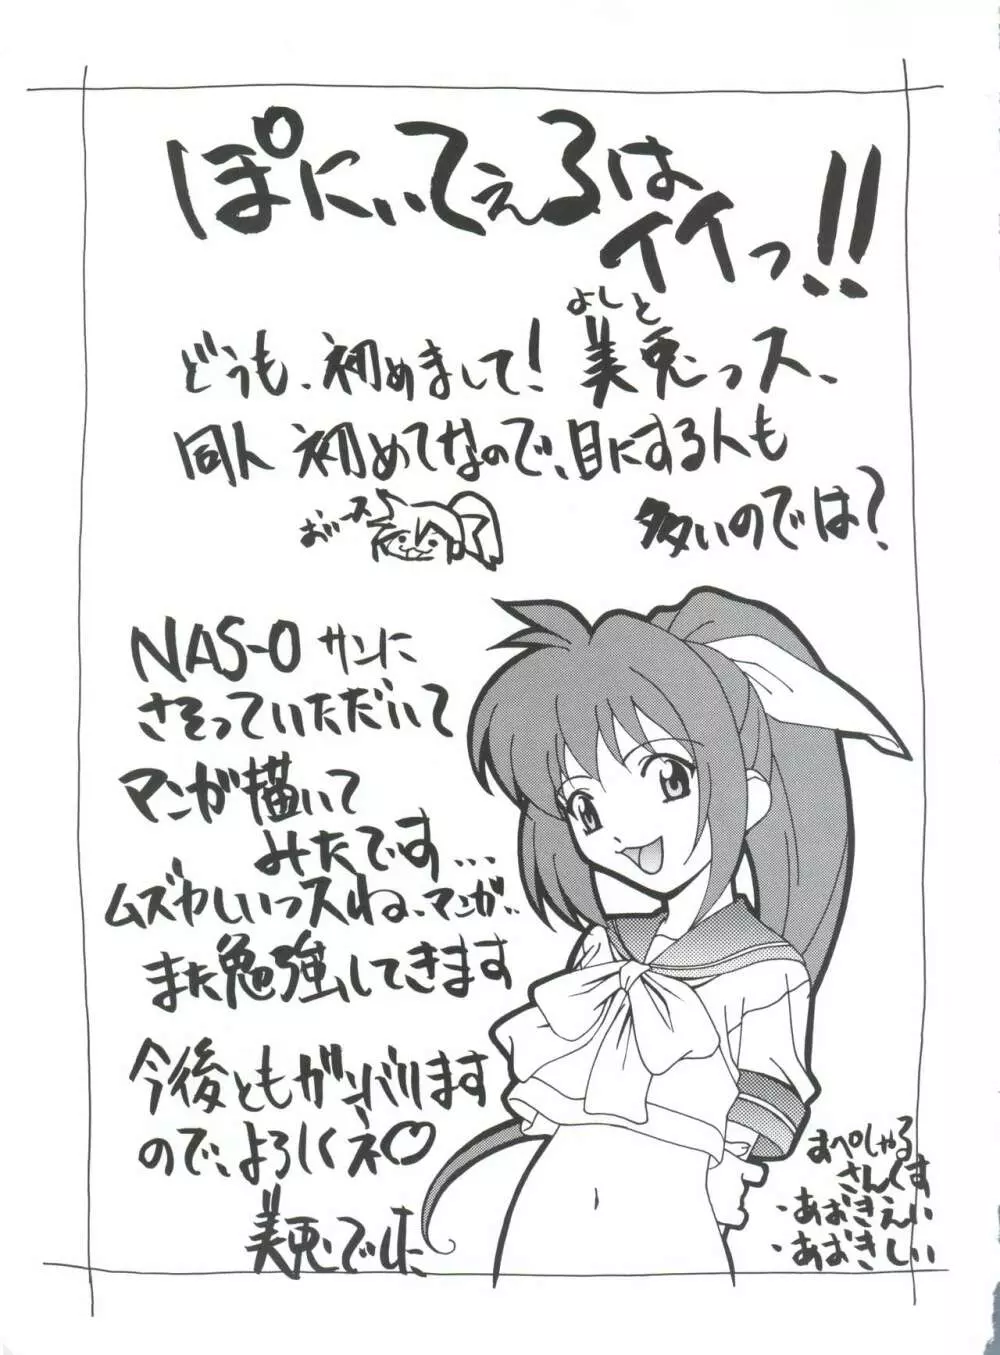 ぽにぃてぇるは
イイっ!!
よしと
どうも、初めまして!美兎っス、
同人初めてなので、目にする人も
多いのでは?
おぃース
NAS-O サンに
さそっていただいて
マンガ描いて
みたです...
ムズかしいっスね、マンガ..
また勉強してきます
今後ともガンバります
ので、よろしくネ♡
美兎でした
すぺしゃる
さんくす
・あおきえい
・あおきしい